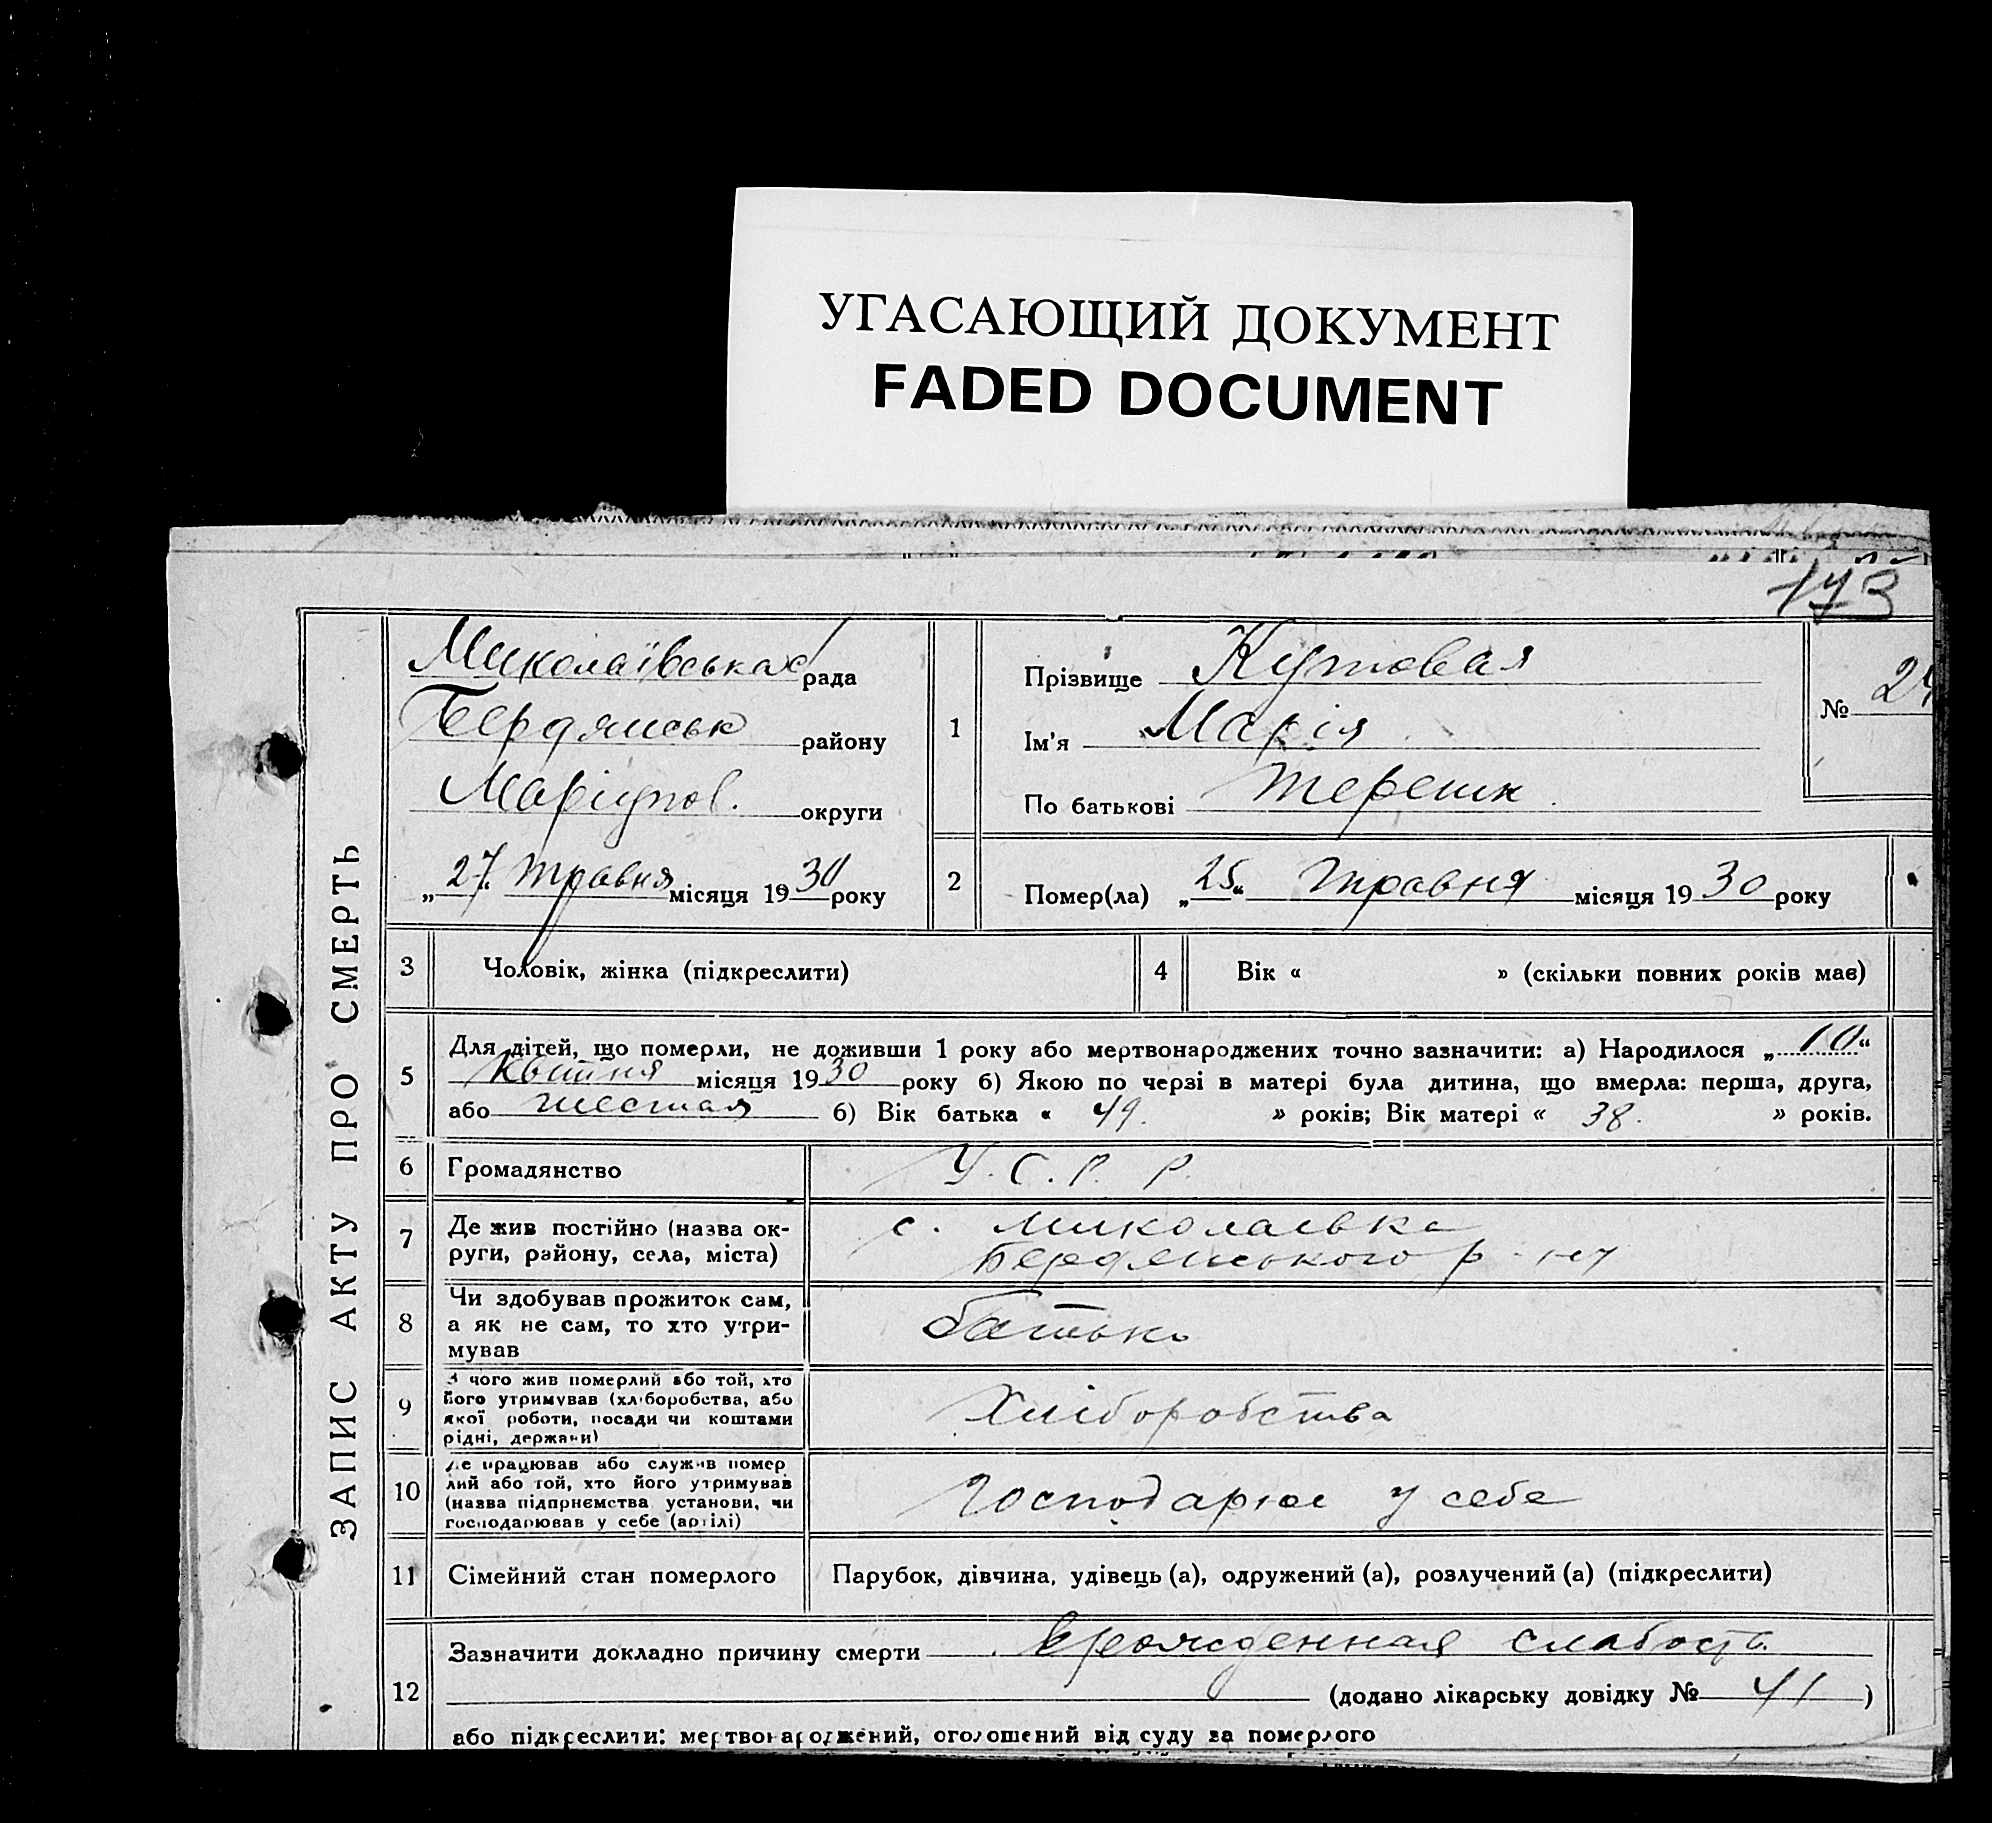 УГАСАЮЩИЙ ДОКУМЕНТ
FADED DOCUMENT
173
ЗАПИС АКТУ ПРО СМЕРТЬ
Миколаївська рада
Бердянськ району
Маріупол. округи
„27“ травня місяця 1930 року
1
Прізвище Кутовая
Ім'я Марія
По батькові Терешк.
№ 24
2
Помер(ла) „25“ травня місяця 1930 року
3
Чоловік, жінка (підкреслити)
4
Вік « » (скільки повних років має)
5
Для дітей, що померли, не доживши 1 року або мертвонароджених точно зазначити: а) Народилося „10“
Квітня місяця 1930 року б) Якою по черзі в матері була дитина, що вмерла: перша, друга,
або шестая б) Вік батька « 49. » років; Вік матері « 38. » років.
6
Громадянство
У.С.Р.Р.
7
Де жив постійно (назва ок-
руги, району, села, міста)
с. Миколаевка
Бердянського р-ну
8
Чи здобував прожиток сам,
а як не сам, то хто утри-
мував
батько
9
З чого жив померлий або той, хто
його утримував (хліборобства, або
якої роботи, посади чи коштами
рідні, держави)
Хліборобства
10
Де працював або служив помер
лий або той, хто його утримував
(назва підпрнємства установи, чи
господарював у себе (артілі)
Господарює у себе
11
Сімейний стан померлого
Парубок, дівчина, удівець (а), одружений (а), розлучений (а) (підкреслити)
12
Зазначити докладно причину смерти врожденная слабость
(додано лікарську довідку № 41)
або підкреслити: мертвонароджений, оголошений від суду за померлого